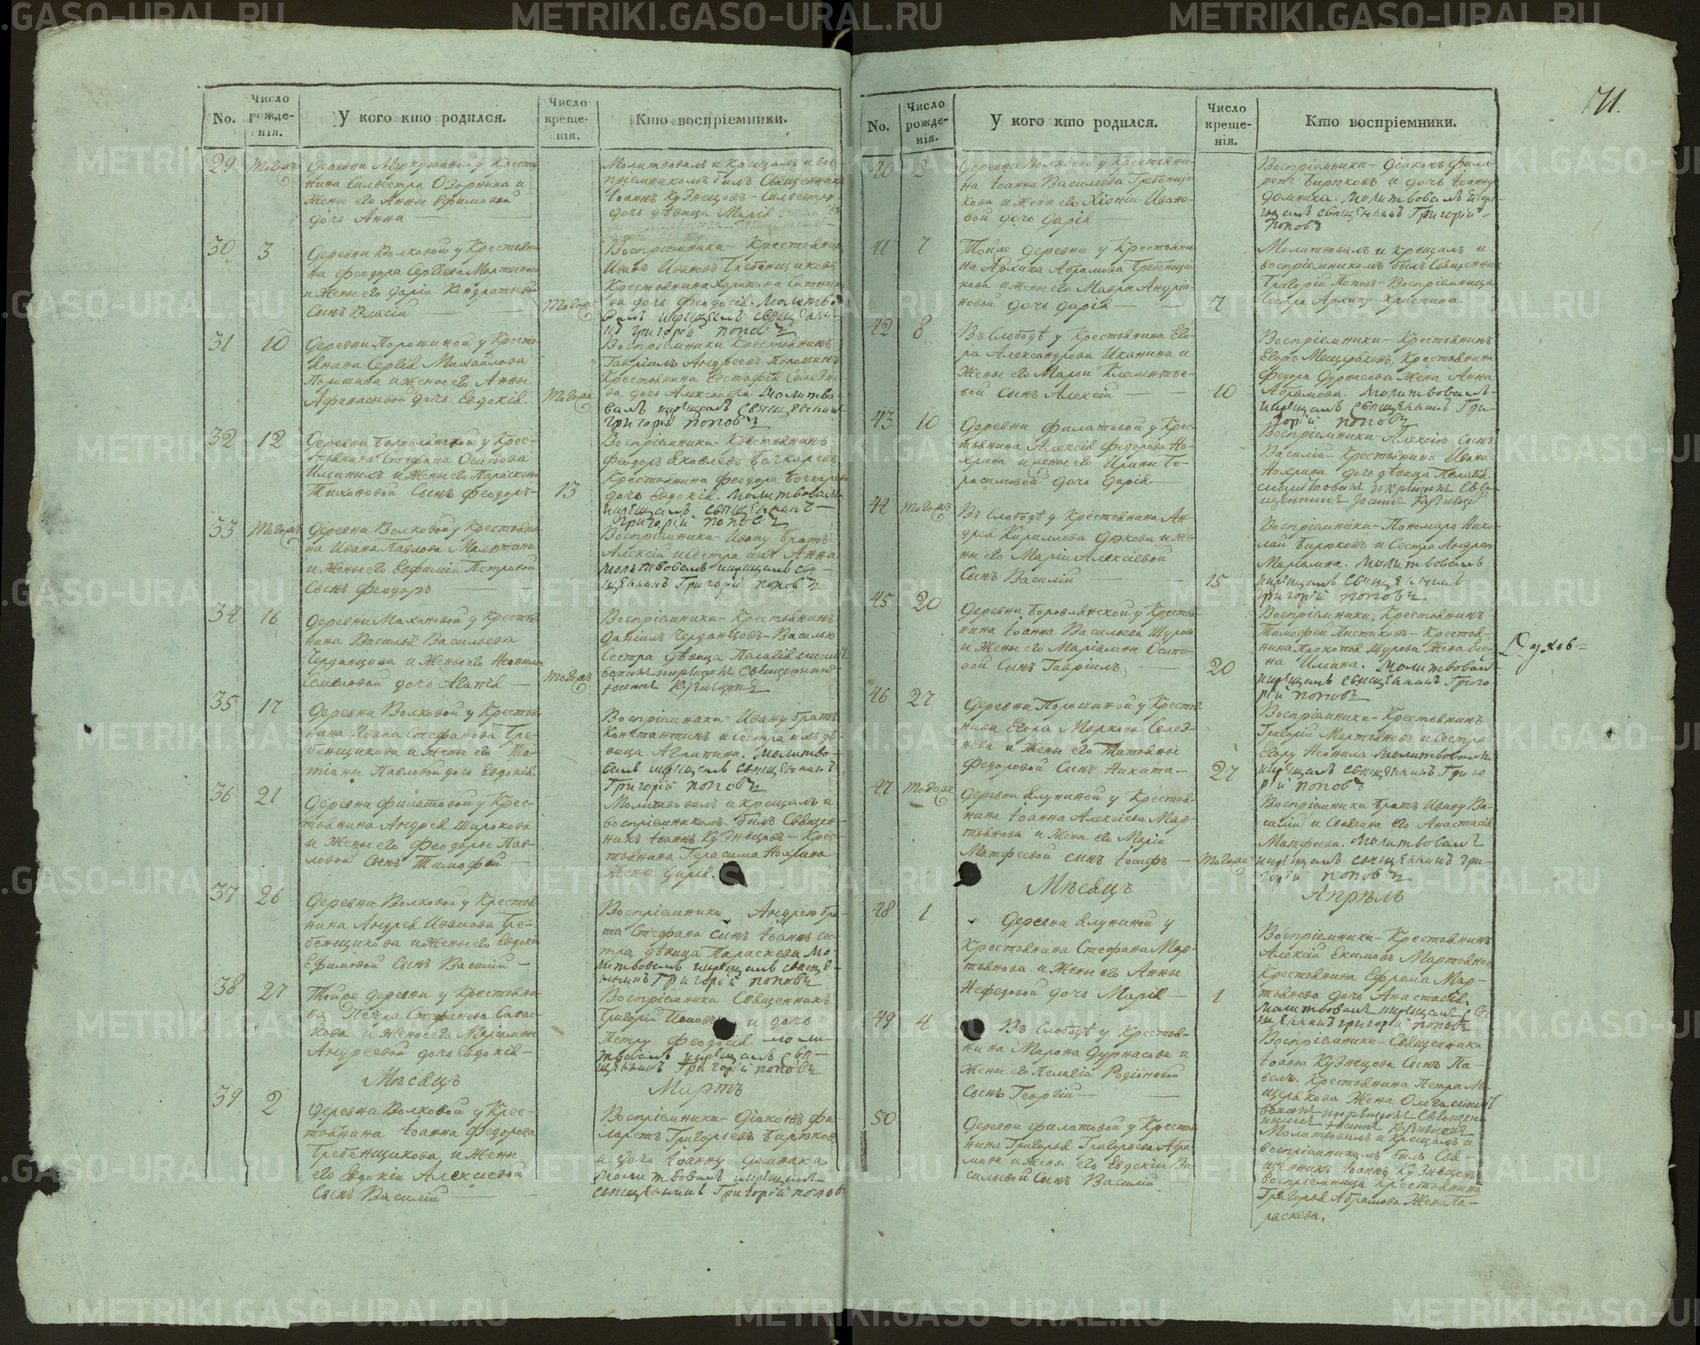 171.
No.
Число рожденія.
У кого кто родился.
Число крещенія.
Кто воспріемники.
29
Тогоже
Деревни Меркушиной у Крестья-
нина Силвестра Озорнина и
Жены его Анны Ефимовой
дочь Анна
Молитвовалъ и крещалъ и вос-
пріемникомъ былъ Священникъ
Іоаннъ Кузнецовъ
дочь дѣвица Марія
30
3
Деревни Волковой у Крестьяни-
на Феодора Сергіева Мартьянова
и Жены его Даріи Кондратьевой
Сынъ Власій
Тогоже
Воспріемники Крестьянинъ
Иванъ Ивановъ Гребенщиковъ
Крестьянина Харитона
дочь Феодосія. Молитво-
валъ и крещалъ священни-
къ Григорій Поповъ
31
10
Деревни Порошиной у Кресть-
янина Сергія Михайлова
Порошина и жены его Анны
Афанасьевой дочь Евдокія.
Тогоже
Воспріемники Крестьянинъ
Гавріилъ Андреевъ Порошинъ
Крестьянина Евстафія Селезне-
ва дочь Александра. Молитво-
валъ и крещалъ священникъ
Григорій Поповъ
32
12
Деревни Боровлянской у Крес-
тьянина Стефана Осипова
и Жены его Параскевы
Тихоновой Сынъ Феодоръ
13
Воспріемники Крестьянинъ
Феодоръ Яковлевъ Бочкаревъ
Крестьянина Феодора Бочкарева
дочь Евдокія. Молитвовалъ
и крещалъ священникъ
Григорій Поповъ
33
Тогоже
Деревни Волковой у Крестьяни-
на Ивана Павлова
и Жены его Евфиміи Петровой
Сынъ Феодоръ
Воспріемники Ивану братъ
Алексій и сестра ихъ Анна
Молитвовалъ и крещалъ св-
ященникъ Григорій Поповъ
34
16
Деревни Махановой у Крестья-
нина Василья Васильева
Черданцова и Жены его
дочь Агапія
Тогоже
Воспріемники Крестьянинъ
Даніилъ Черданцовъ Василью
Сестра дѣвица Пелагія
Священникъ
Іоаннъ Кузнецовъ
35
17
Деревни Волковой у Крестья-
нина Ивана Стефанова Гре-
бенщикова и Жены его Та-
тіаны Павловой дочь Евдокія
Воспріемники Ивану братъ
Константинъ и сестра ихъ дѣ-
вица Агрипина. Молитво-
валъ и крещалъ священникъ
Григорій Поповъ
36
21
Деревни Филатовой у Крес-
тьянина Андрея Широкова
и Жены его Феодоры Пав-
ловой Сынъ Тимофей
Молитвовалъ и крещалъ и
воспріемникомъ былъ Священ-
никъ Іоаннъ Кузнецовъ Крес-
тьянина Герасима
Жена Дарія.
37
26
Деревни Волковой у Крестья-
нина Андрея Иванова Гре-
бенщикова и Жены его Евдокіи
Ефимовой Сынъ Василій
Воспріемники Андрею бра-
та Стефана Сынъ Іоаннъ сес-
тра дѣвица Параскева. Мо-
литвовалъ и крещалъ свяще-
нникъ Григорій Поповъ
38
27
Тойже деревни у Крестьяни-
на Петра Стефанова
и Жены его Маріамны
Андреевой дочь Евдокія
Воспріемники Священникъ
Григорій Поповъ и дочь
Петру Феодосія. Моли-
твовалъ и крещалъ свя-
щенникъ Григорій Поповъ
Мѣсяцъ
Мартъ
39
2
Деревни Волковой у Крес-
тьянина Іоанна Федорова
Гребенщикова и Жены
его Евдокіи Алексіевой
Сынъ Василій
Воспріемники Діаконъ Фи-
ларетъ Григорьевъ Бирюковъ
и дочь Іоанну Домника
Молитвовалъ и крещалъ
священникъ Григорій Поповъ
No.
Число рожденія.
У кого кто родился.
Число крещенія.
Кто воспріемники.
40
2
Деревни Волковой у Крестьяни-
на Іоанна Васильева Гребенщи-
кова и Жены его Хіоніи Ивано-
вой дочь Дарія
Воспріемники Діаконъ Фила-
ретъ Бирюковъ и дочь Іоанну
Домника. Молитвовалъ и кре-
щалъ священникъ Григорій
Поповъ
41
7
Тойже деревни у Крестьяни-
на Архипа Абрамова Гребенщи-
кова и Жены его Мавры Андрія-
новой дочь Дарія
7
Молитвовалъ и крещалъ и
воспріемникомъ былъ Священникъ
Григорій Поповъ Воспріемница
Сестра Архипу Христина.
42
8
Въ Слободѣ у Крестьянина Его-
ра Александрова Иканина и
Жены его Марьи Климентье-
вой Сынъ Алексій
10
Воспріемники Крестьянинъ
Егоръ Мещеряковъ, Крестьянина
Федора Дурнасова Жена Анна
Абрамова. Молитвовалъ
и крещалъ священникъ Гри-
горій Поповъ
43
10
Деревни Филатовой у Крес-
тьянина Алексія Федорова
и жены его Ирины Ге-
расимовой дочь Дарія.
Воспріемники Алексію Сынъ
Василій Крестьянина Ивана
дочь дѣвица Пелагія
Молитвовалъ и крещалъ Свя-
щенникъ Іоаннъ Кузнецовъ
44
Тогоже
Въ Слободѣ у Крестьянина Ан-
дрея Кирилова Дюкова и Же-
ны его Маріи Алексіевой
Сынъ Василій
15
Воспріемники Пономарь Нико-
лай Бирюковъ и Сестра Андрею
Маріамна. Молитвовалъ
и крещалъ священникъ
Григорій Поповъ
45
20
Деревни Боровлянской у Крестья-
нина Іоанна Васильева Щурова
и Жены его Маріамны Осипо-
вой Сынъ Гавріилъ.
20
Воспріемники, Крестьянинъ
Тимофей Листиковъ Крестья-
нина Прокопья Щурова Жена
на Ильина. Молитвовалъ
и крещалъ священникъ Григо-
рій Поповъ
46
27
Деревни Порошиной у Крестья-
нина Егора Маркова Селез-
нева и Жены его Татьяны
Федоровой Сынъ Никита
27
Воспріемники Крестьянинъ
Григорій Мартьяновъ и Сестра
Егору Неонила Молитвовалъ
и крещалъ священникъ Григо-
рій Поповъ
47
Тогоже
Деревни Клуниной у Крестья-
нина Іоанна Алексіева Мар-
тьянова и Жены его Маріи
Матфеевой сынъ Іосифъ
Тогоже
Воспріемники братъ Ивану Ва-
силій и Своячина его Анастасія
Матфеева. Молитвовалъ
и крещалъ священникъ Гри-
горій Поповъ
Мѣсяцъ
Апрѣль
48
1
Деревни Клуниной у
Крестьянина Стефана Мар-
тьянова и Жены его Анны
Нефедовой дочь Марія
1
Воспріемники Крестьянинъ
Алексій Екимовъ Мартьяновъ
Крестьянина Ефрема Мар-
тьянова дочь Анастасія.
Молитвовалъ и крещалъ свя-
щенникъ Григорій Поповъ
49
4
Въ Слободѣ у Крестья-
нина Мирона Дурнасова и
Жены его Пелагіи Родіоновой
Сынъ Георгій
Воспріемники Священника
Іоанна Кузнецова Сынъ Па-
велъ. Крестьянина Петра Ме-
щерякова Жена
и крещалъ Священ-
никъ Іоаннъ Кузнецовъ
50
Деревни Филатовой у Крестья-
нина Григорья Григорьева Абра-
мова и Жены его Евдокіи Ва-
сильевой Сынъ Василій
Молитвовалъ и крещалъ и
воспріемникомъ былъ Свя-
щенникъ Іоаннъ Кузнецовъ
воспріемница Крестьянина
Григорья Абрамова Жена Па-
раскева.
Духов-